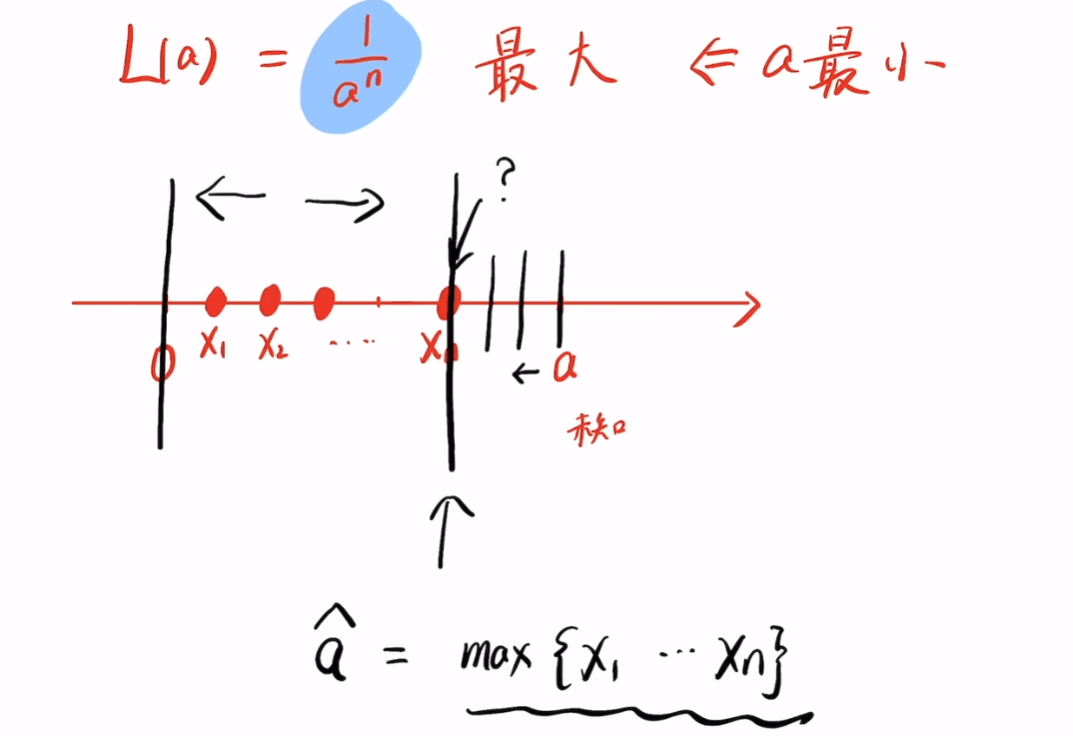 L(a) = 1/aⁿ 最大 ⇐ a最小
?
0 x₁ x₂ ···· xₙ ← a
未知
â = max {x₁ ··· xₙ}